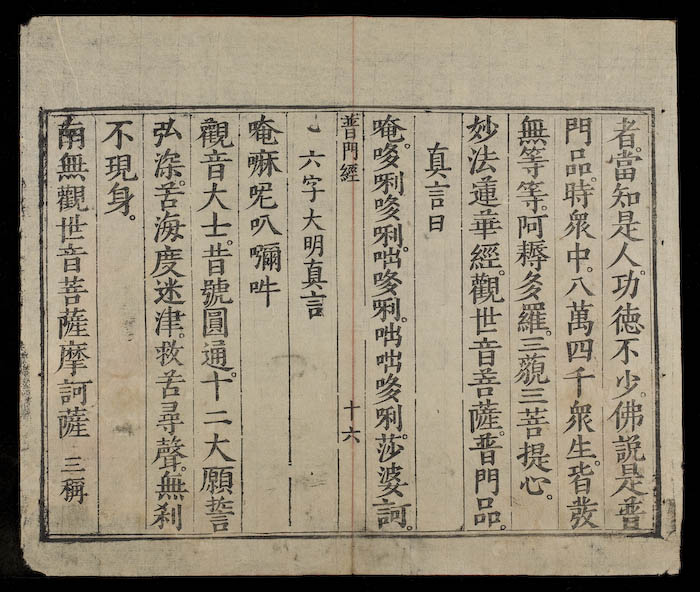 者。當知是人。功德不少。佛說是普
門品。時衆中。八萬四千衆生。皆發
無等等。阿耨多羅。三藐三菩提心。
妙法蓮華經。觀世音菩薩。普門品。
真言曰
唵。哆唎哆唎。咄哆唎。咄咄哆唎。莎婆訶。
普門經 十六
六字大明真言
唵嘛呢叭𡄣吽
觀音大士。昔號圓通。十二大願誓
弘深。苦海度迷津。救苦尋聲。無刹
不現身。
南無觀世音菩薩摩訶薩 三稱